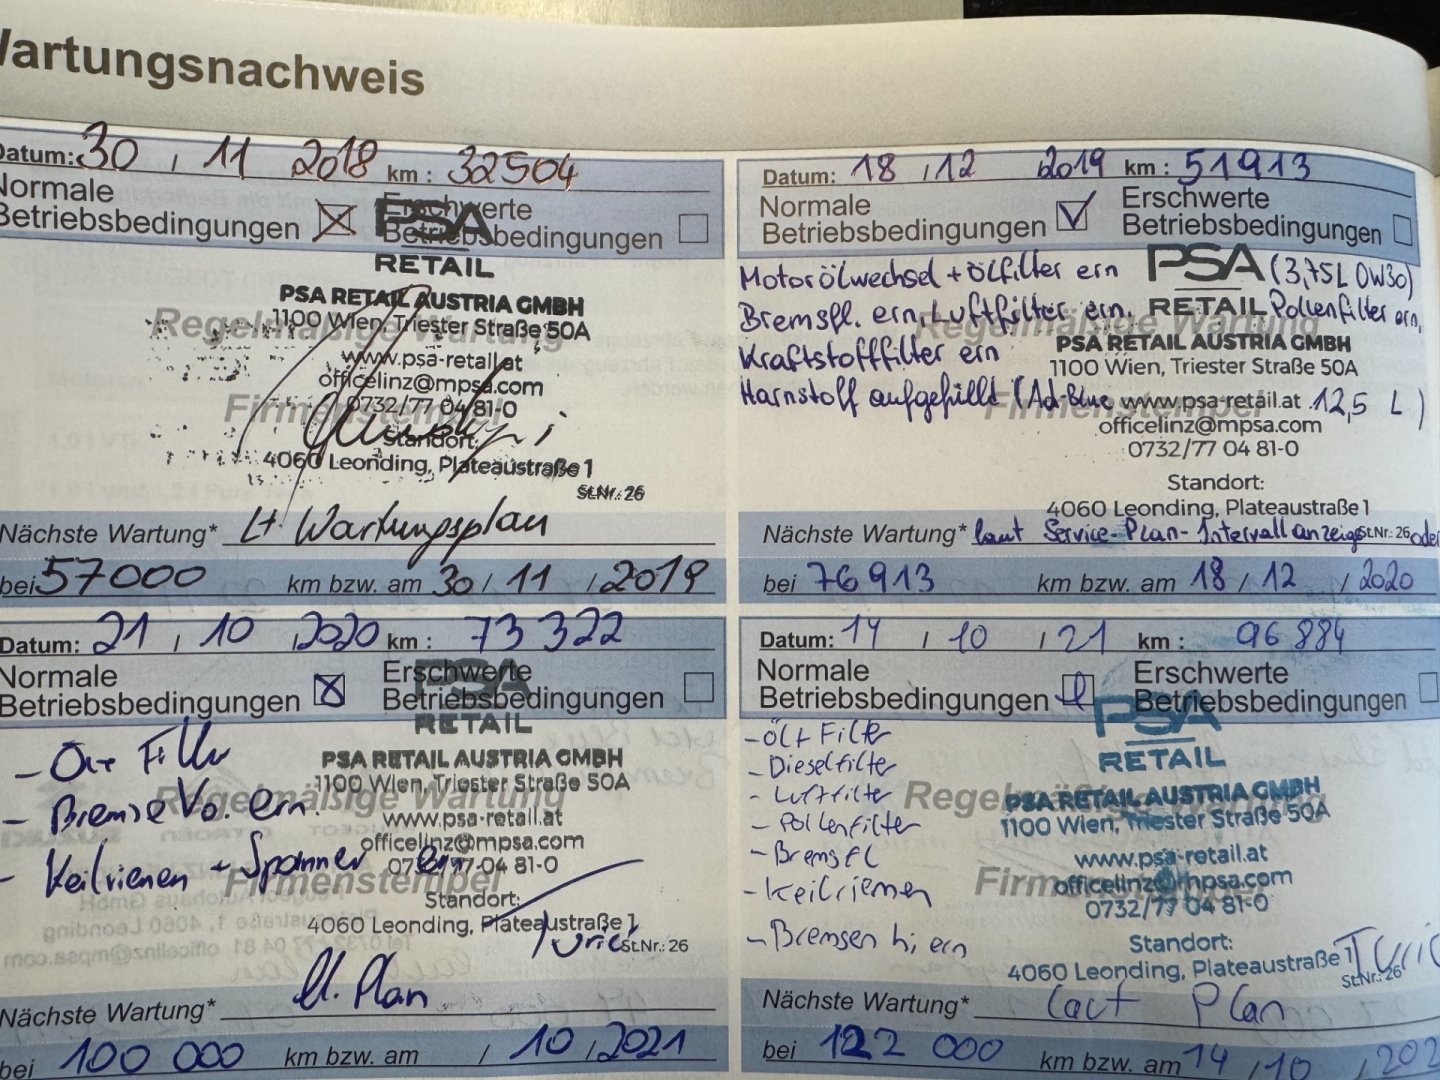 Wartungsnachweis
Datum: 30 / 11 2018 km : 32504
Normale
Betriebsbedingungen
Erschwerte
Betriebsbedingungen
PSA
RETAIL
PSA RETAIL AUSTRIA GMBH
Regelmäßige Wartung
1100 Wien, Triester Straße 50A
www.psa-retail.at
officelinz@mpsa.com
Firmenstempel
0732/77 04 81-0
Standort:
4060 Leonding, Plateaustraße 1
St.Nr.: 26
Nächste Wartung* Lt. Wartungsplan
bei 57000 km bzw. am 30 / 11 / 2019
Datum: 18 / 12 2019 km : 51913
Normale
Betriebsbedingungen
Erschwerte
Betriebsbedingungen
Motorölwechsel + Ölfilter ern (3,75L 0W30)
PSA
RETAIL
Bremsfl. ern, Luftfilter ern. Pollenfilter ern,
Regelmäßige Wartung
Kraftstofffilter ern
PSA RETAIL AUSTRIA GMBH
1100 Wien, Triester Straße 50A
Harnstoff aufgefüllt (Ad-Blue 12,5 L )
Firmenstempel
www.psa-retail.at
officelinz@mpsa.com
0732/77 04 81-0
Standort:
4060 Leonding, Plateaustraße 1
St.Nr.: 26
Nächste Wartung* laut Service-Plan-Intervallanzeige oder
bei 76913 km bzw. am 18 / 12 / 2020
Datum: 21 / 10 / 2020 km : 73 322
Normale
Betriebsbedingungen
Erschwerte
Betriebsbedingungen
PSA
RETAIL
PSA RETAIL AUSTRIA GMBH
1100 Wien, Triester Straße 50A
- Bremse Vo. ern.
Regelmäßige Wartung
www.psa-retail.at
officelinz@mpsa.com
- Keilriemen + Spanner ern
0732/77 04 81-0
Firmenstempel
Standort:
4060 Leonding, Plateaustraße 1
St.Nr.: 26
Nächste Wartung* Plan
bei 100 000 km bzw. am / 10 / 2021
Datum: 14 / 10 / 21 km : 96 884
Normale
Betriebsbedingungen
Erschwerte
Betriebsbedingungen
PSA
RETAIL
- Öl + Filter
- Dieselfilter
- Luftfilter
- Pollenfilter
- Bremsfl
- Keilriemen
- Bremsen hi, ern
Regelmäßige Wartung
PSA RETAIL AUSTRIA GMBH
1100 Wien, Triester Straße 50A
www.psa-retail.at
Firmenstempel
officelinz@mpsa.com
0732/77 04 81-0
Standort:
4060 Leonding, Plateaustraße 1
St.Nr.: 26
Nächste Wartung* laut Plan
bei 122 000 km bzw. am 14 / 10 / 202